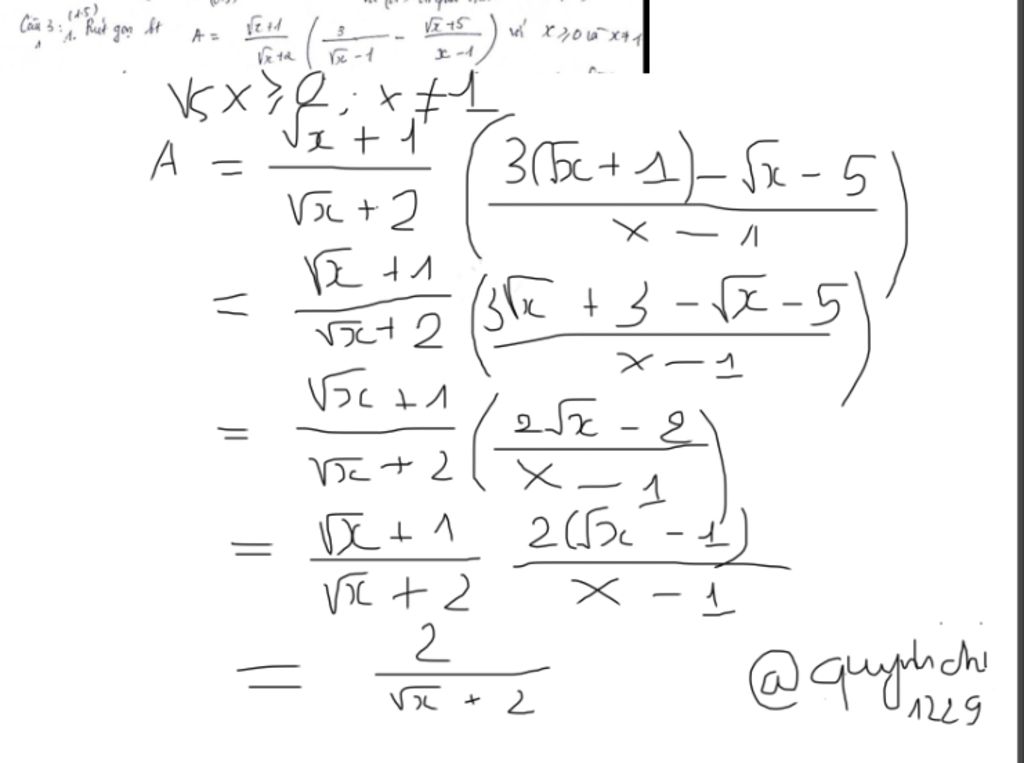 Câu 3: (1.5)
1. Rút gọn bt A = \frac{\sqrt{x}+1}{\sqrt{x}+2} \left( \frac{3}{\sqrt{x}-1} - \frac{\sqrt{x}+5}{x-1} \right) với x ≥ 0 và x ≠ 1
V5 x ≥ 0; x ≠ 1
A = \frac{\sqrt{x}+1}{\sqrt{x}+2} \left( \frac{3(\sqrt{x}+1)-\sqrt{x}-5}{x-1} \right)
= \frac{\sqrt{x}+1}{\sqrt{x}+2} \left( \frac{3\sqrt{x}+3-\sqrt{x}-5}{x-1} \right)
= \frac{\sqrt{x}+1}{\sqrt{x}+2} \left( \frac{2\sqrt{x}-2}{x-1} \right)
= \frac{\sqrt{x}+1}{\sqrt{x}+2} \frac{2(\sqrt{x}-1)}{x-1}
= \frac{2}{\sqrt{x}+2}
@quynhchi
1229